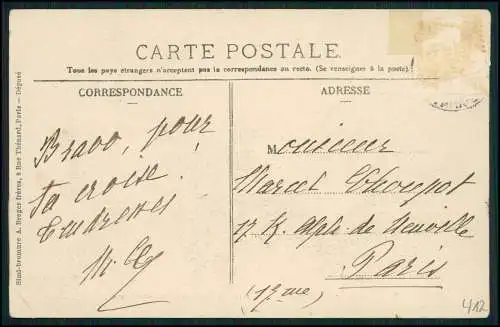 CARTE POSTALE.
Tous les pays étrangers n'acceptent pas la correspondance au recto. (Se renseigner à la poste).
CORRESPONDANCE
Bravo, pour
ta croise !
Tendresses
ADRESSE
Monsieur
Marcel
17 R. Alph. de Neuville
Paris
(17me)
412
Simi-bromure A. Breger frères, 9 Rue Thénard, Paris — Déposé